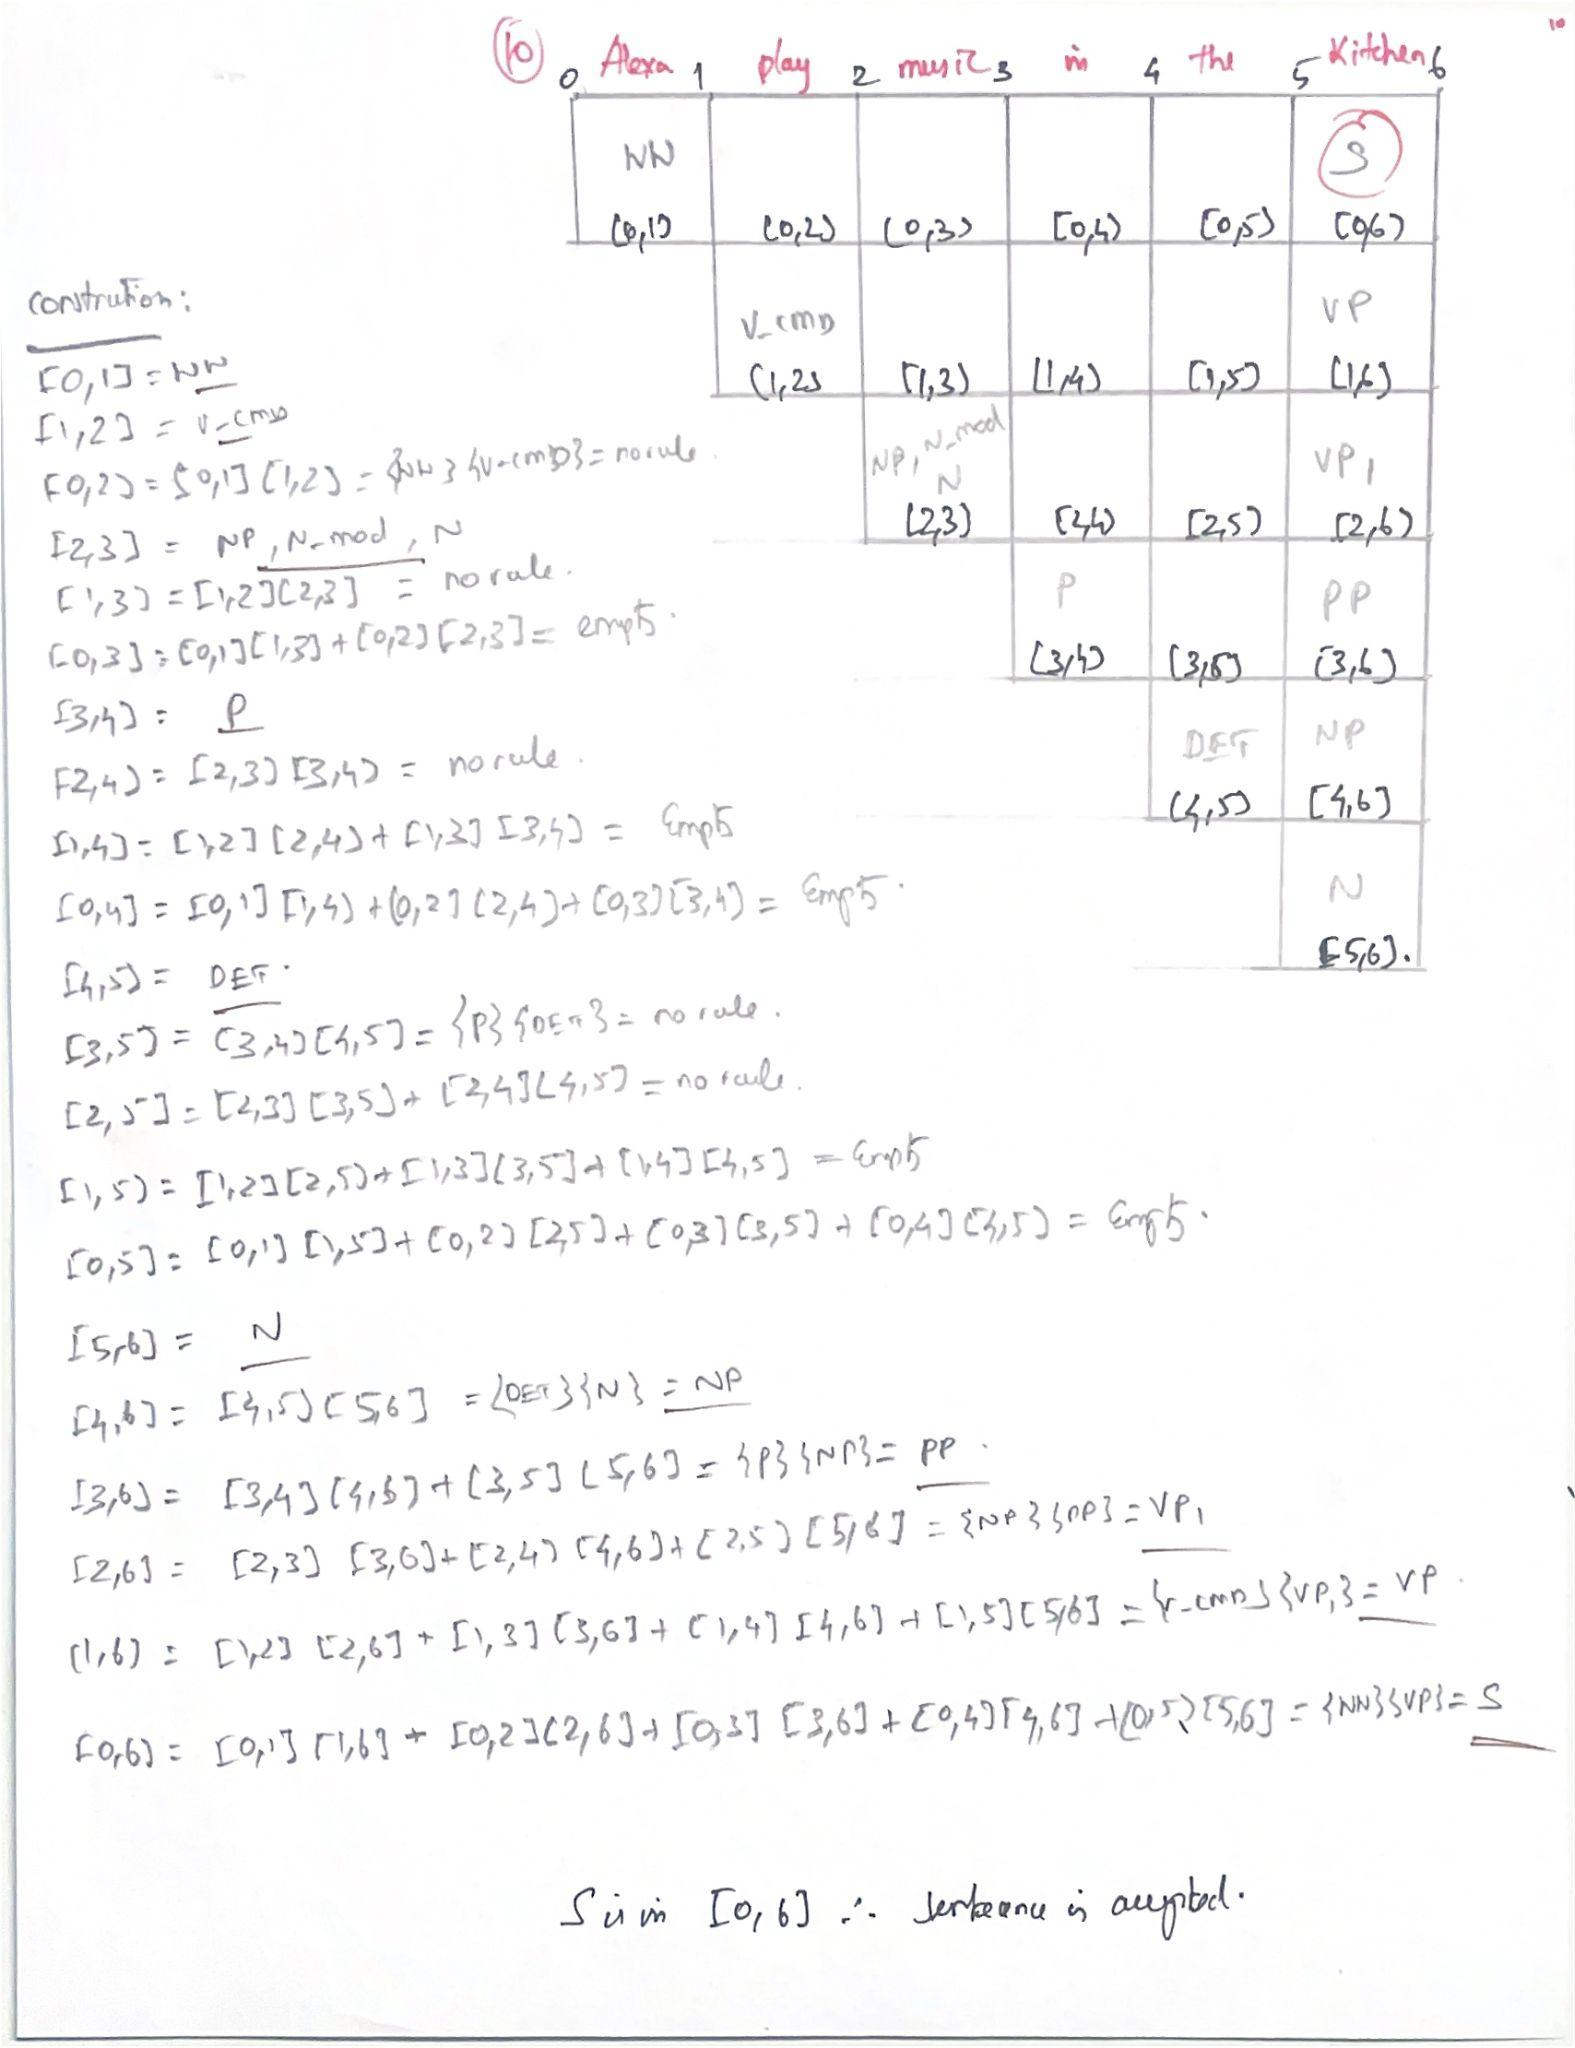 10
(10) 0 Alexa 1 play 2 music 3 in 4 the 5 Kitchen 6
NN S
(0,1) (0,2) (0,3) [0,4) [0,5) [0,6)
V_CMD VP
(1,2) [1,3) [1,4) [1,5) [1,6)
NP, N_mod N VP1
[2,3) [2,4) [2,5) [2,6)
P PP
[3,4) [3,5) [3,6)
DET NP
[4,5) [4,6]
N
[5,6].
constrution:
[0,1] = NN
[1,2] = V_CMD
[0,2) = [0,1] [1,2) = {NN} {V_CMD} = no rule.
[2,3] = NP, N_mod, N
[1,3) = [1,2][2,3] = no rule.
[0,3] = [0,1][1,3] + [0,2][2,3] = empty.
[3,4) = P
[2,4) = [2,3) [3,4) = no rule.
[1,4) = [1,2] [2,4) + [1,3] [3,4) = Empty
[0,4] = [0,1] [1,4) + [0,2] [2,4) + [0,3] [3,4) = Empty.
[4,5) = DET.
[3,5] = [3,4) [4,5] = {P} {DET} = no rule.
[2,5] = [2,3] [3,5) + [2,4] [4,5] = no rule.
[1,5) = [1,2] [2,5) + [1,3] [3,5] + [1,4] [4,5] = Empty
[0,5] = [0,1] [1,5] + [0,2] [2,5] + [0,3] [3,5) + [0,4] [4,5) = Empty.
[5,6] = N
[4,6] = [4,5) [5,6] = {DET} {N} = NP
[3,6) = [3,4] [4,6] + [3,5] [5,6] = {P} {NP} = PP.
[2,6] = [2,3] [3,6] + [2,4) [4,6] + [2,5) [5,6] = {NP} {PP} = VP1
[1,6) = [1,2] [2,6] + [1,3] [3,6] + [1,4] [4,6] + [1,5] [5,6] = {V_CMD} {VP1} = VP.
[0,6) = [0,1] [1,6] + [0,2] [2,6] + [0,3] [3,6] + [0,4] [4,6] + [0,5] [5,6] = {NN} {VP} = S
S is in [0,6] ∴ sentence is accepted.